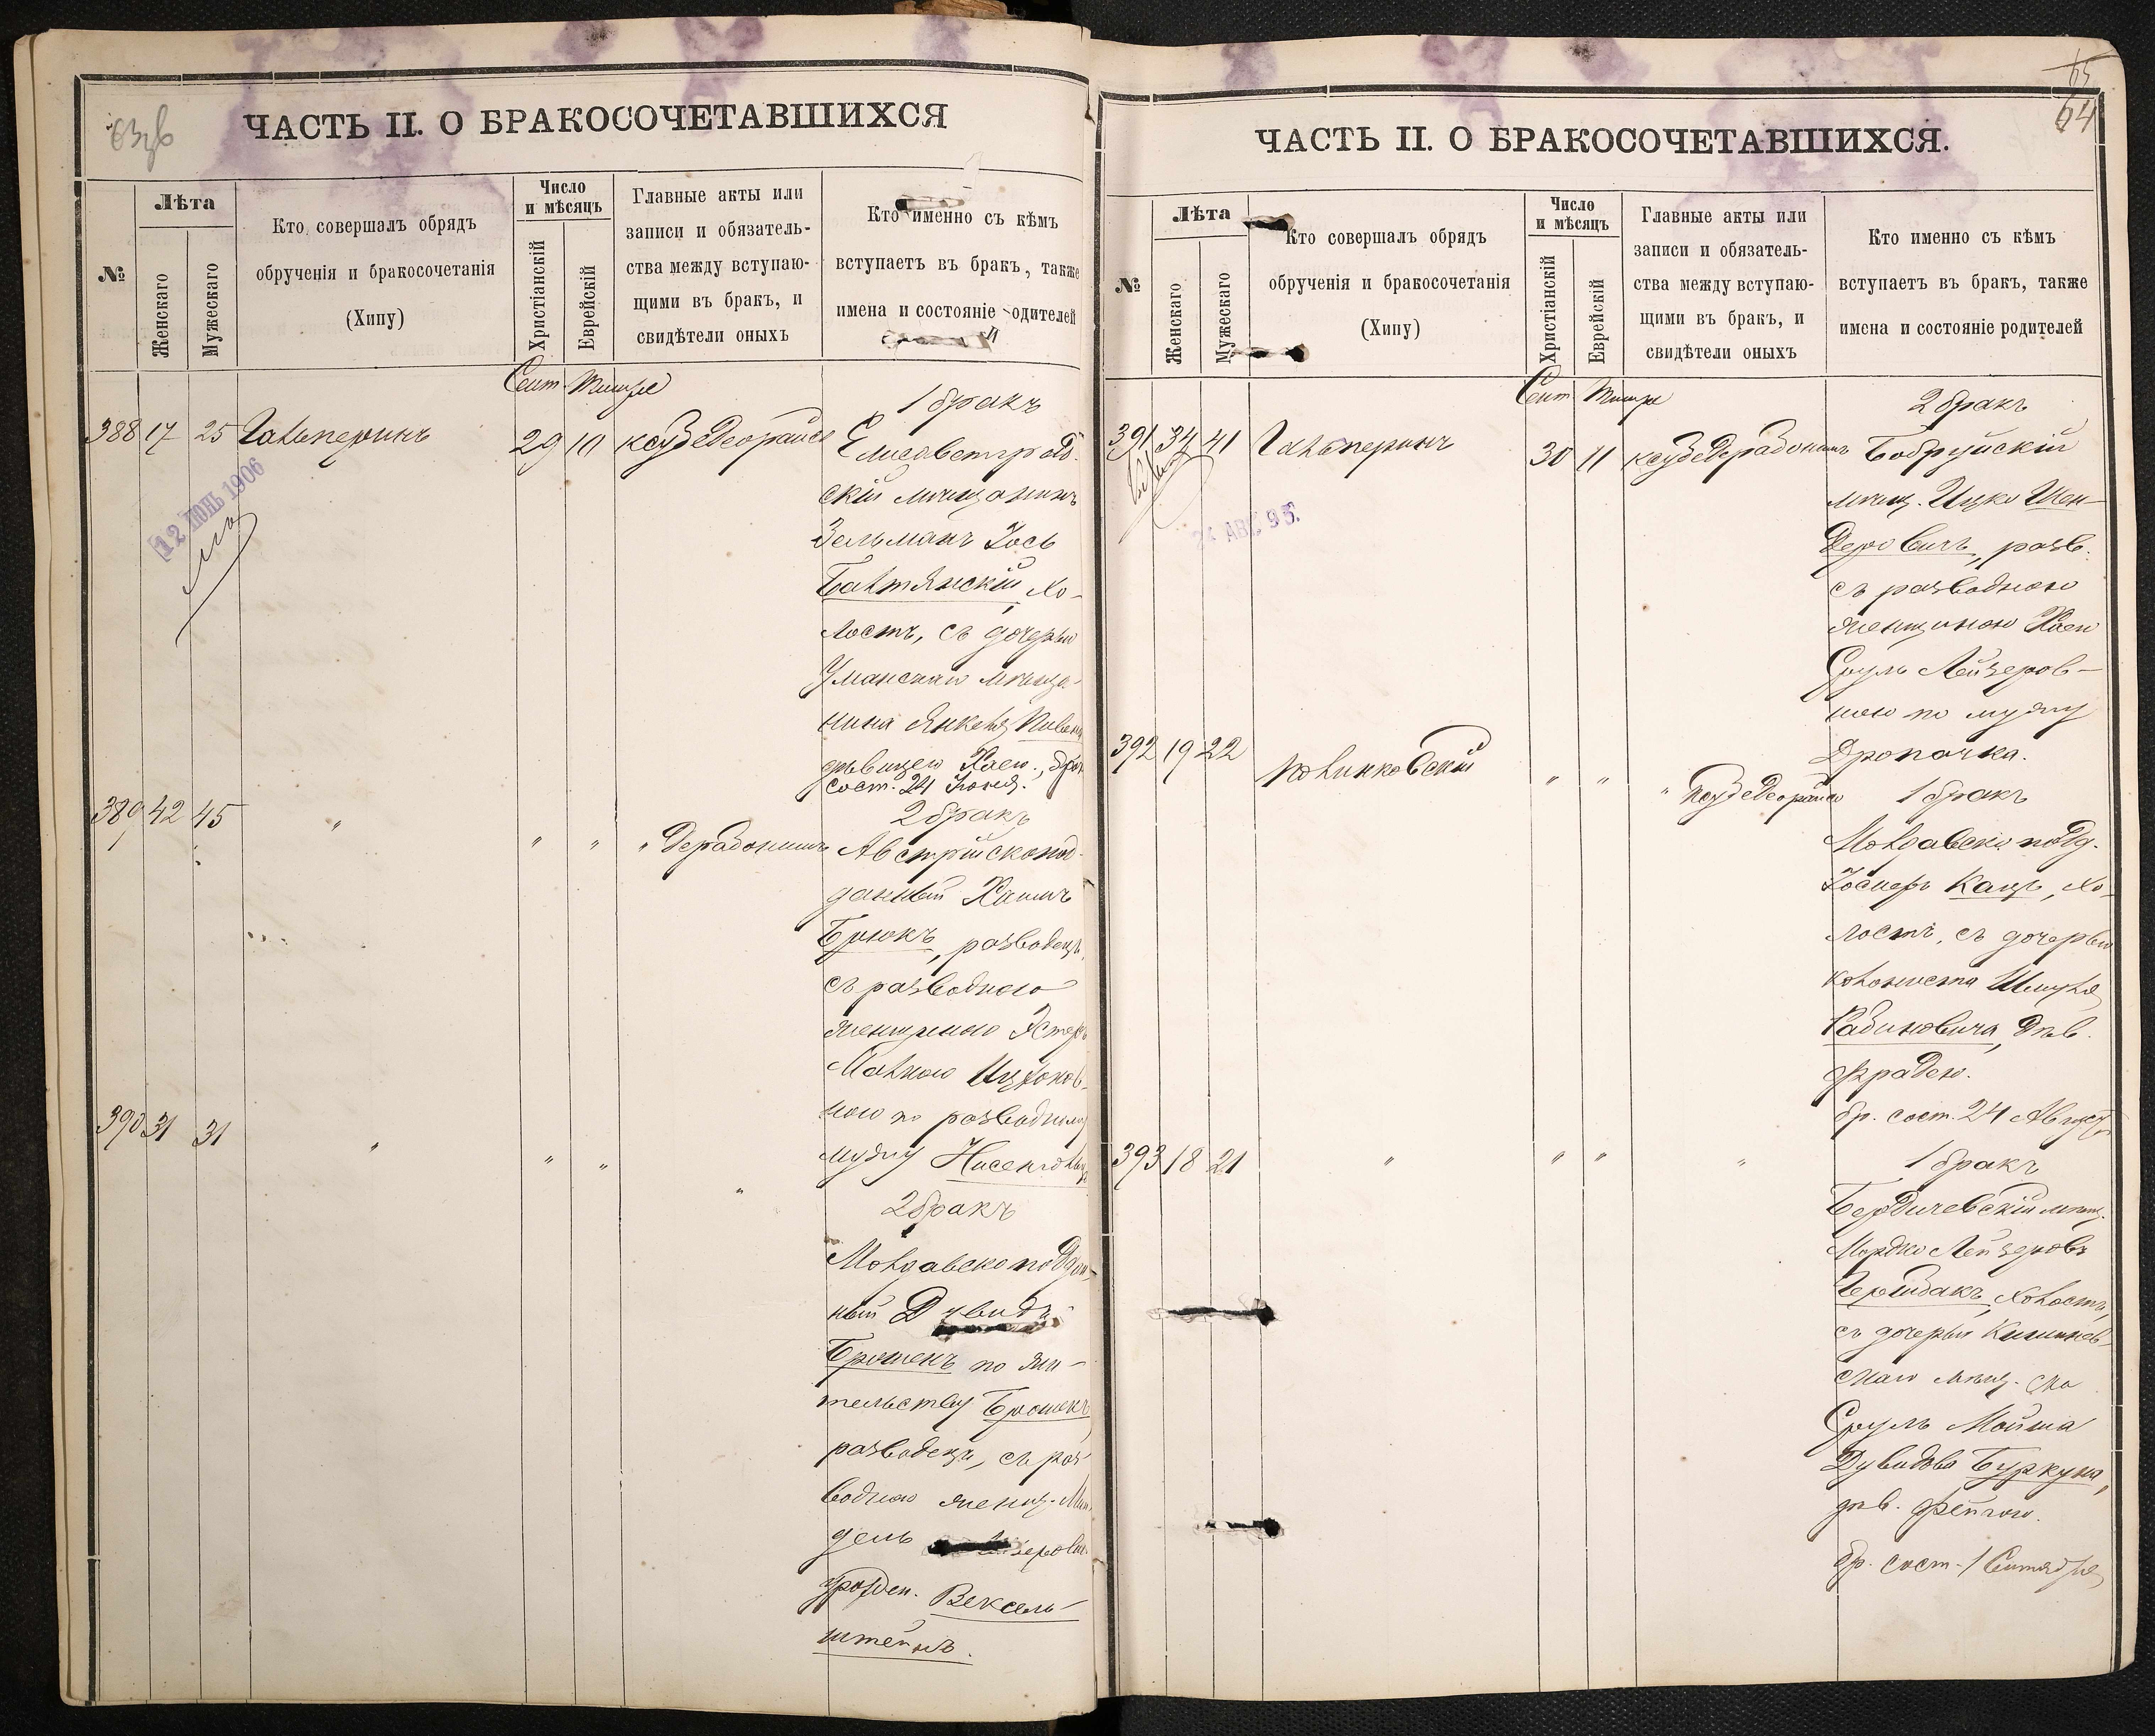 ЧАСТЬ II. О БРАКОСОЧЕТАВШИХСЯ
№
Лѣта
Женскаго
Мужескаго
Кто совершалъ обрядъ
обрученія и бракосочетанія
(Хипу)
Число
и мѣсяцъ
Христіанскій
Еврейскій
Главные акты или
записи и обязатель-
ства между вступаю-
щими въ бракъ, и
свидѣтели оныхъ
Кто именно съ кѣмъ
вступаетъ въ брак, также
имена и состояніе одителей
Сент. Тишре
1 бракъ
388 17 25 Гальперинъ 29 10 Елисаветград-
12 ІЮНЬ 1906
скій мѣщанинъ
Зельманъ Іось
Балтянскій, хо-
лостъ, съ дочерью
Уманскаго мѣща-
нина Янкеля
дѣвицею Хаею.,
сост. 24 Іюня.
2 бракъ
389 42 45 " " " "
Австрійскопод-
данный Хаимъ
Брюкъ, разводецъ,
съ разводною
женщиною Эстеръ
Малкою
ною по разводному
мужу
390 31 31 " " " "
2 бракъ
Молдавскоподдан-
ный Давидъ
Брошекъ по жи-
тельству Брошекъ
разводецъ, съ раз-
водною женщ.
дель
урожден. Вексель-
штейнъ.
65
64
ЧАСТЬ II. О БРАКОСОЧЕТАВШИХСЯ.
№
Лѣта
Женскаго
Мужескаго
Кто совершалъ обрядъ
обрученія и бракосочетанія
(Хипу)
Число
и мѣсяцъ
Христіанскій
Еврейскій
Главные акты или
записи и обязатель-
ства между вступаю-
щими въ бракъ, и
свидѣтели оныхъ
Кто именно съ кѣмъ
вступаетъ въ бракъ, также
имена и состояніе родителей
Сент Тишре
2 бракъ
391 34 41 Гальперинъ 30 11 Бобруйскій
24 АВГ. 95.
мѣщ. Ицко Шен-
деровичъ, разв.
съ разводною
женщиною Хаею
Сруль Лейзеров-
ною по мужу
Дропачка.
392 19 22 Полинковскій " "
1 бракъ
Молдавско подд.
Іосифъ Кацъ, хо-
лостъ, съ дочерью
колониста Шмуля
Рабиновича, дѣв.
Фрадею.
бр. сост. 24 Августа
393 18 21 " " " "
1 бракъ
Бердичевскій мѣщ.
Мордко Лейзеровъ
холостъ,
съ дочерью Кишинев-
скаго мѣщ.
Сруль Мойша
Дувидова Буркуна,
дѣв. Фейгою.
бр. сост. 1 Сентября